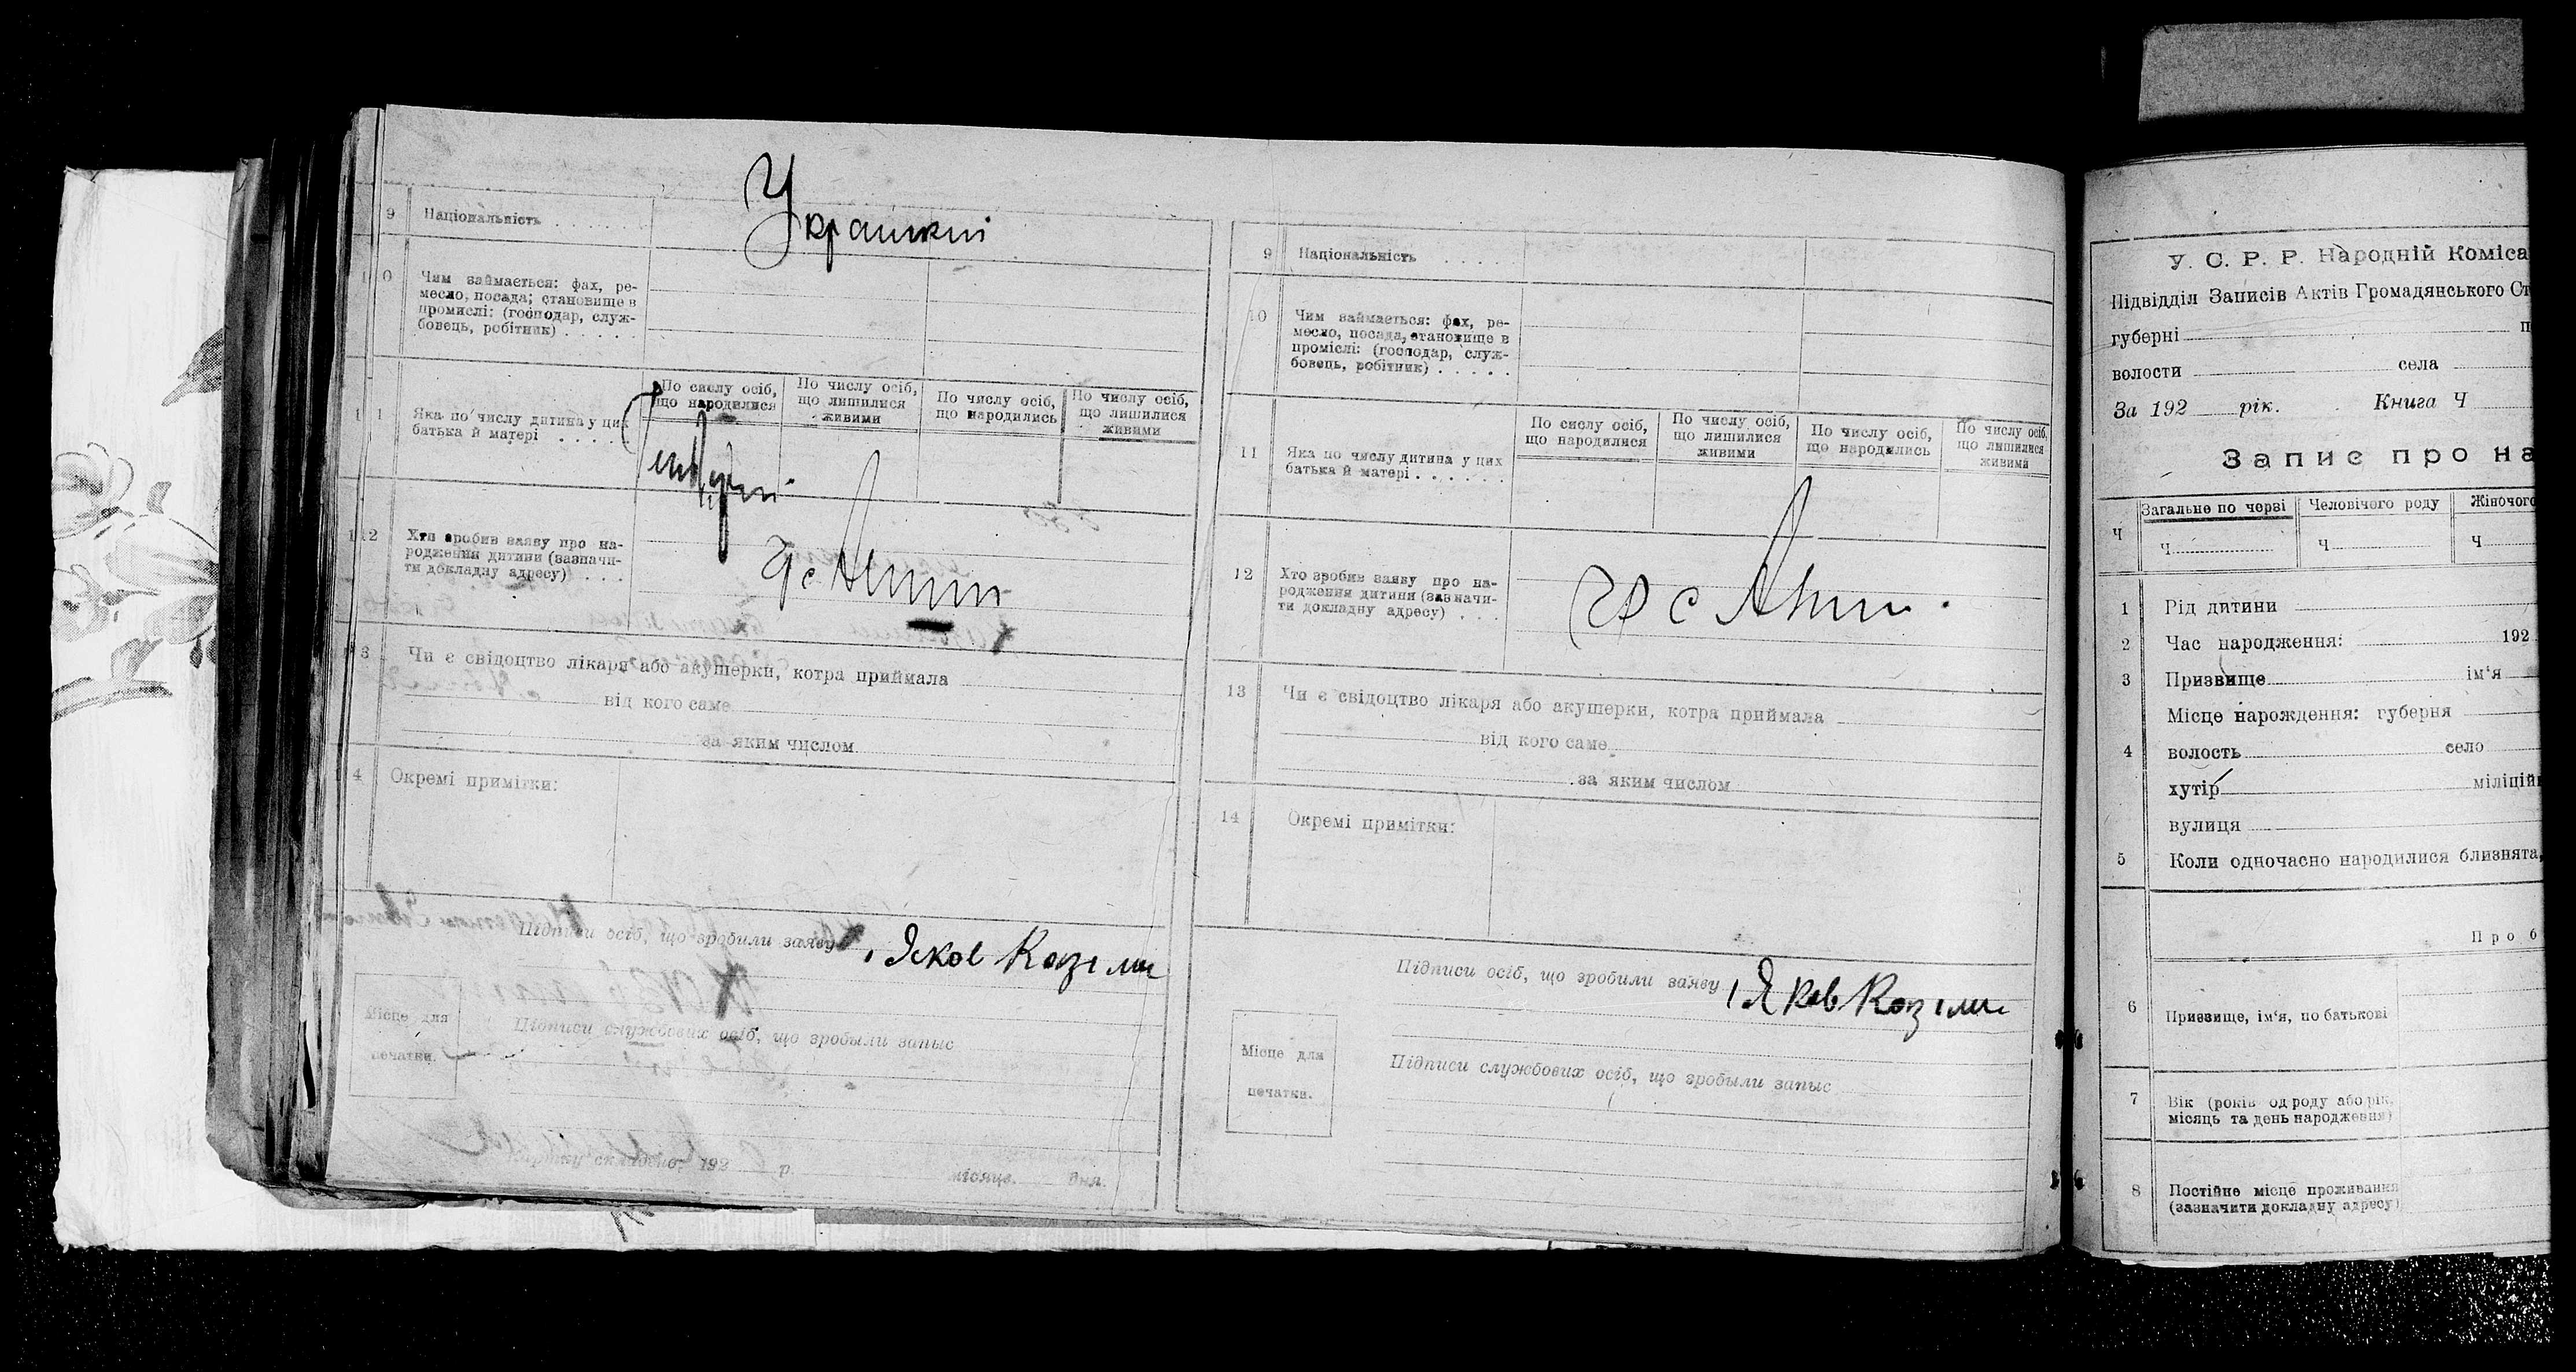 9 Національність
Украинкиі
10 Чим займається: фах, ре-
месло, посада; становище в
промислі: (господар, служ-
бовець, робітник)
11 Яка по числу дитина у цих
батька й матері
По сислу осіб,
що народилися
По числу осіб,
що лишилися
живими
По числу осіб,
що народились
По числу осіб,
що лишилися
живими
12 Хто зробив заяву про на-
родження дитини (зазначи-
ти докладну адресу)
с
13 Чи є свідоцтво лікаря або акушерки, котра приймала
від кого саме
за яким числом
14 Окремі примітки:
Підписи осіб, що зробили заяву
Яков
Місце для
печатки.
Підписи службових осіб, що зробыли запыс
Картку складено: 192 р. місяця. дня.
9 Національність
10 Чим займається: фах, ре-
месло, посада, становище в
проміслі: (господар, служ-
бовець, робітник)
11 Яка по числу дитина у цих
батька й матері
По сислу осіб,
що народилися
По числу осіб,
що лишилися
живими
По числу осіб,
що народились
По числу осіб,
що лишилися
живими
12 Хто зробив заяву про на-
родження дитини (зазначи-
ти докладну адресу)
с
13 Чи є свідоцтво лікаря або акушерки, котра приймала
від кого саме
за яким числом
14 Окремі примітки:
Підписи осіб, що зробили заяву
Яков
Місце для
печатки.
Підписи службових осіб, що зробыли запыс
У. С. Р. Р. Народній Коміса
Підвідділ Записів Актів Громадянського Ст
губерні п
волости села
За 192 рік. Книга Ч
Запис про на
Ч
Загальне по черзі
Ч
Человічего роду
Ч
Жіночого
Ч
1 Рід дитини
2 Час народження: 192
3 Призвище ім'я
4 Місце нарождення: губерня
волость село
хутір міліцій
вулиця
5 Коли одночасно народилися близнята,
Про б
6 Призвище, ім'я, по батькові
7 Вік (років од роду або рік,
місяць та день народження)
8 Постійне місце проживання
(зазначити докладну адресу)